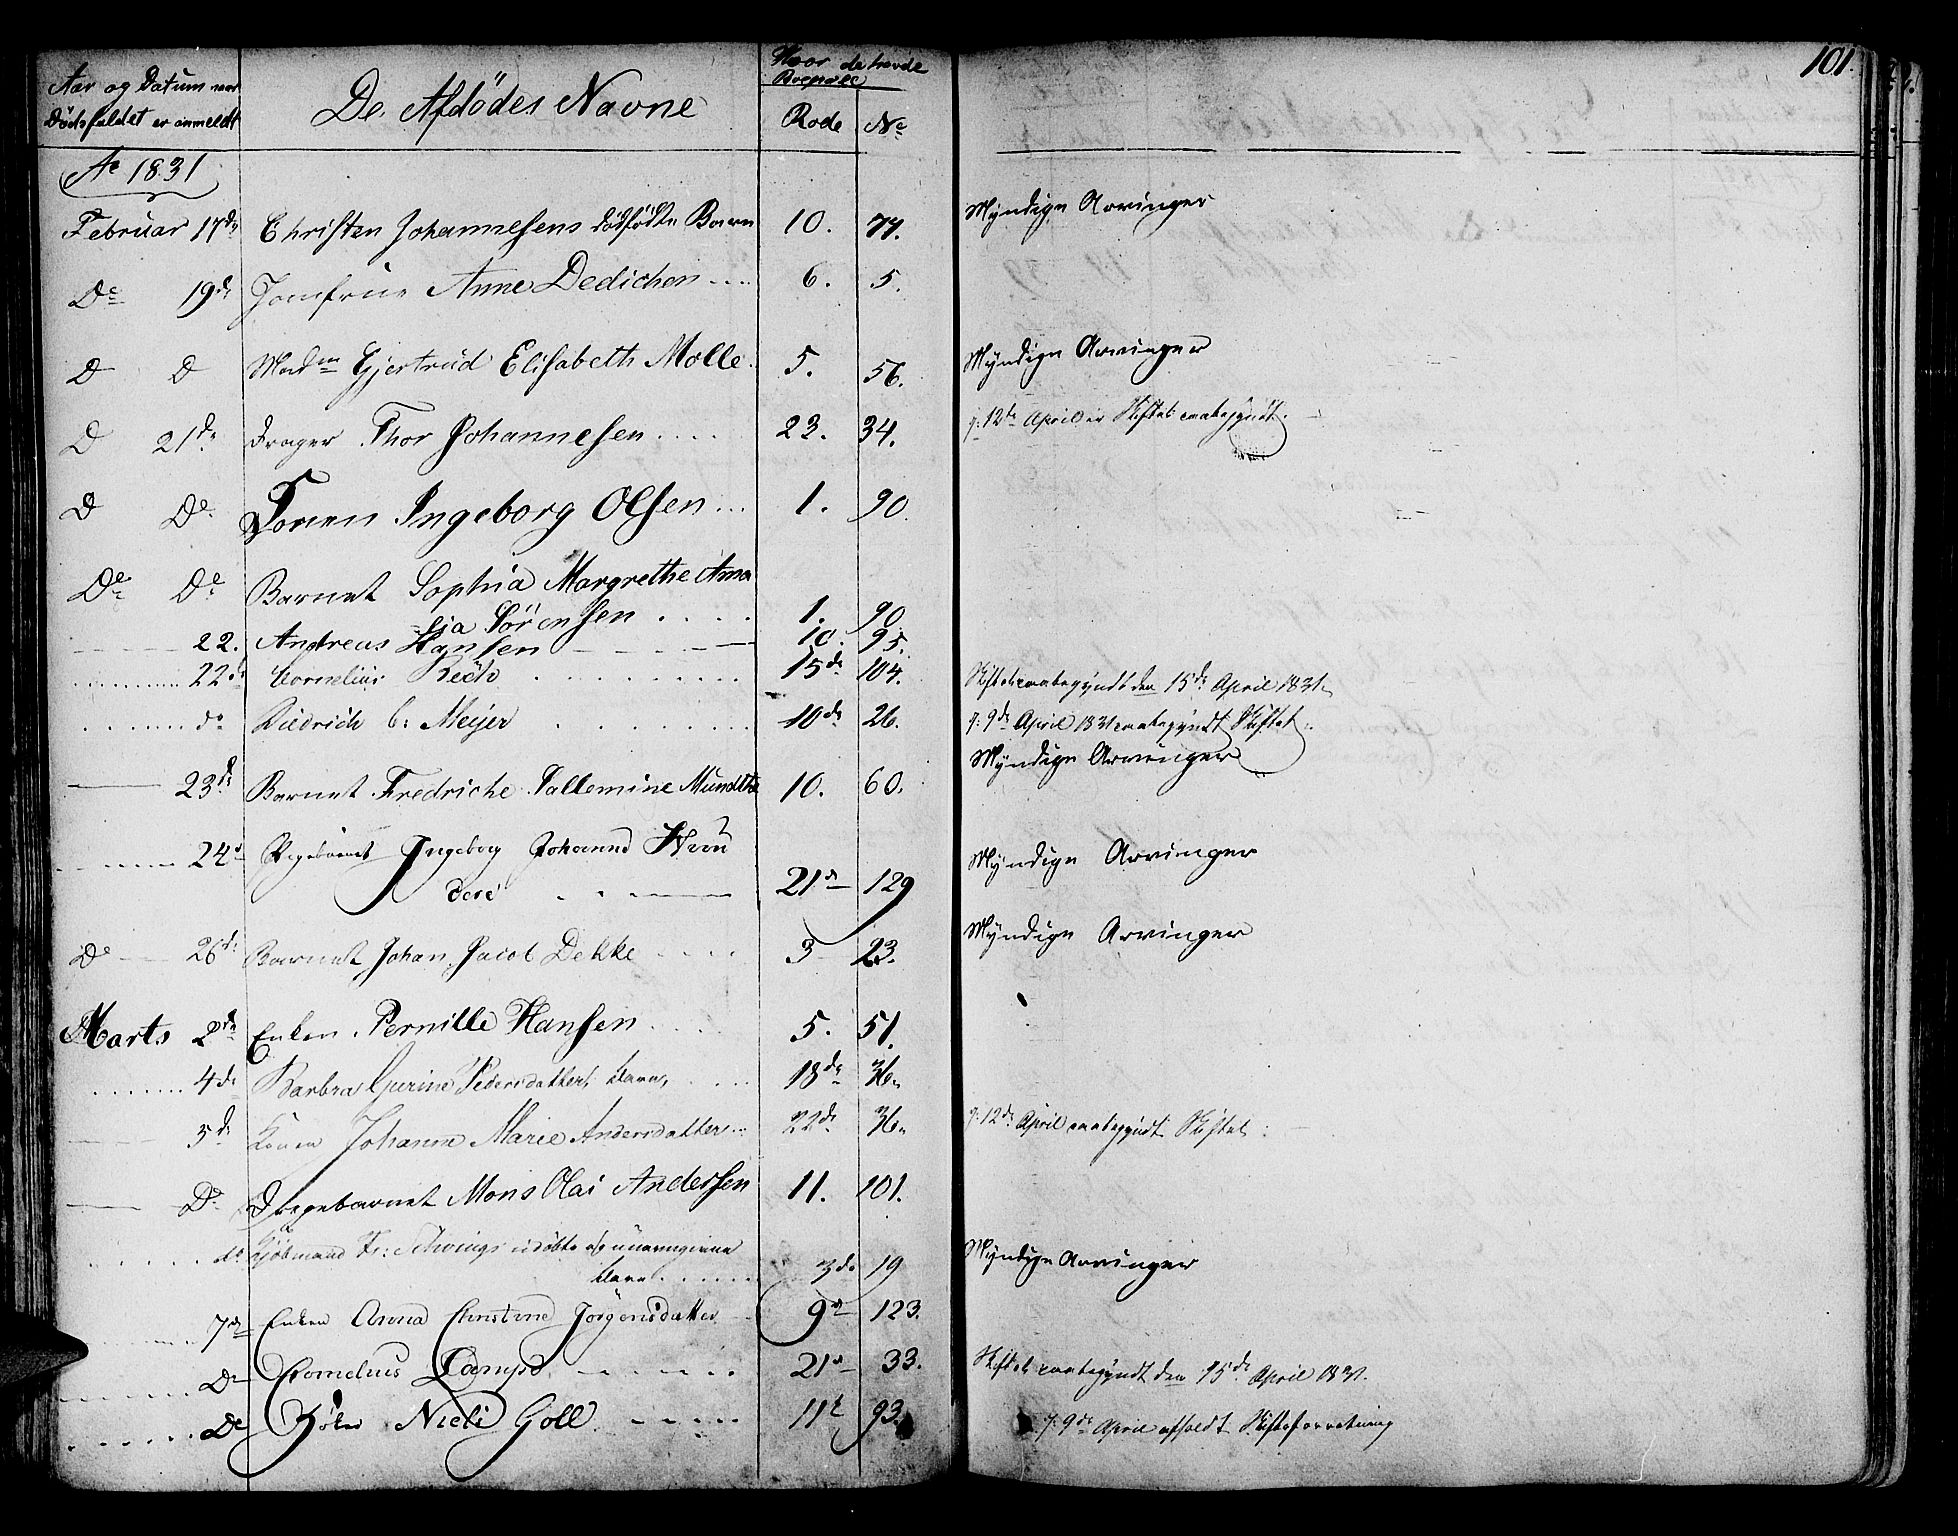 101.
Aar og Datum naar Dødsfaldet er anmeldt
De Afdødes Navne
Hvor de havde Boepæl
Rode No
Ao 1831
Februar 17de Christen Johannesens dødfødte Barn 10. 77. Myndige Arvinger
Do 19de Jomfrue Anne Dedichen .... 6. 5.
D D Madm Gjertrud Elisabeth Molle. 5. 56. Myndige Arvinger
D 21de Drager Thor Johannesen .... 23. 34. 12de April er Skiftet paabegyndt.
D Do Ingeborg Olsen ... 1. 90.
Do Do Barnet Sophia Margrethe Ama
lia Sørensen .... 1. 90
22. Andreas Hansen 10. 95.
22de Cornelius 15de 104. Skiftet paabegyndt den 15de April 1831.
do Diedrich C: Meÿer 10de 26. 9de April 1831 paabegyndt Skiftet.
23de Barnet Fredriche Vallemine Mundthe 10. 60. Myndige Arvinger
24d Pigebarnet Ingeborg Johanne
21d 129 Myndige Arvinger
Do 26d Barnet Johan Jacob Dekke 3 23. Myndige Arvinger
Marts 2de Enken Pernille Hansen 5. 51.
4de Barbra Gurine Pedersdatters Barn, 18de 36.
5d Konen Johanne Marie Andersdatter 22de 36. 12de April paabegyndt Skiftet.
Do Drengebarnet Mons Olai Andersen 11. 101.
do Kjøbmand Fr: udøbte og unavngivne
Barn 3de 19 Myndige Arvinger
7de Enken Anna Christine Jørgensdatter 9d 123.
Do Cornelius Kamps 21d 33. Skiftet paabegyndt den 15de April 1831.
Do Niels Goll 11t 93. 9de April afholdt Skifteforretning